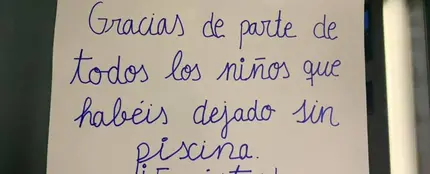 Gracias de parte de
todos los niños que
habéis dejado sin
piscina.